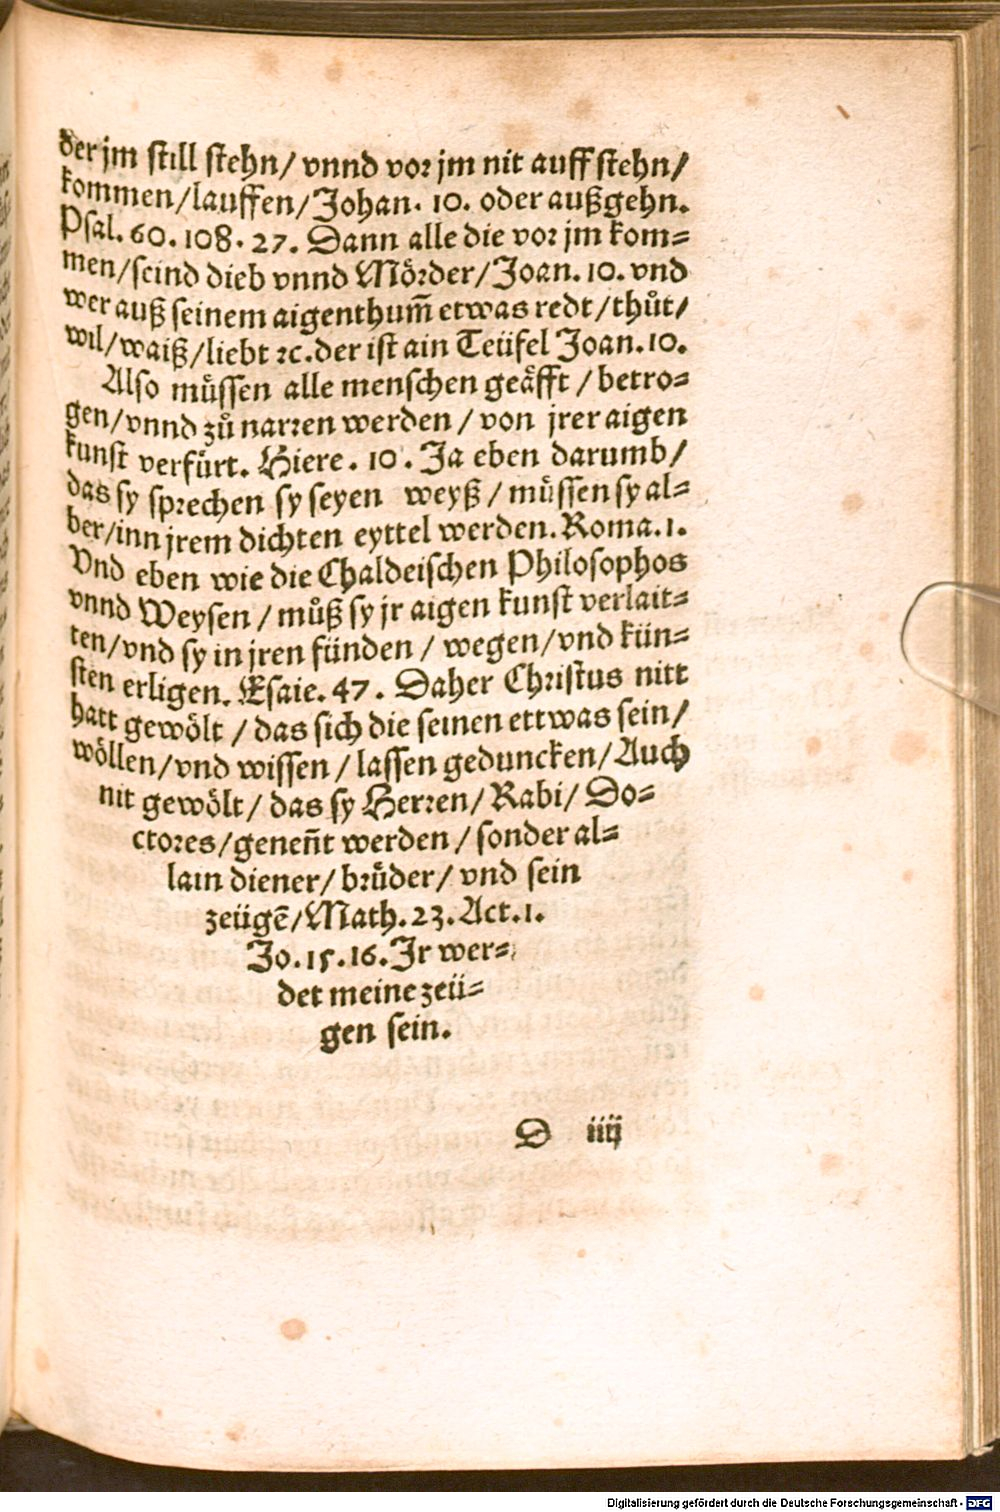 der jm still stehn/ vnnd vor jm nit auff stehn/
kommen/lauffen/Johan. 10. oder außgehn.
Psal. 60. 108. 27. Dann alle die vor jm kom⸗
men/seind dieb vnnd Mörder/Joan. 10. vnd
wer auß seinem aigenthum̃ etwas redt/thůt/
wil/waiß/liebt ꝛc. der ist ain Teüfel Joan. 10.
Also müssen alle menschen geäfft / betro⸗
gen/vnnd zů narren werden / von jrer aigen
kunst verfürt. Hiere. 10. Ja eben darumb/
das sy sprechen sy seyen weyß / müssen sy al⸗
ber/inn jrem dichten eyttel werden. Roma. 1.
Vnd eben wie die Chaldeischen Philosophos
vnnd Weysen / můß sy jr aigen kunst verlait⸗
ten/vnd sy in jren fünden / wegen/vnd kün⸗
sten erligen. Esaie. 47. Daher Christus nitt
hatt gewölt / das sich die seinen ettwas sein/
wöllen/vnd wissen / lassen geduncken/ Auch
nit gewölt/ das sy Herren/ Rabi/ Do⸗
ctores/geneñt werden / sonder al⸗
lain diener/ brůder/ vnd sein
zeügẽ/Math. 23. Act. 1.
Jo. 15. 16. Jr wer⸗
det meine zeü⸗
gen sein.
D iiij
Digitalisierung gefördert durch die Deutsche Forschungsgemeinschaft - DFG